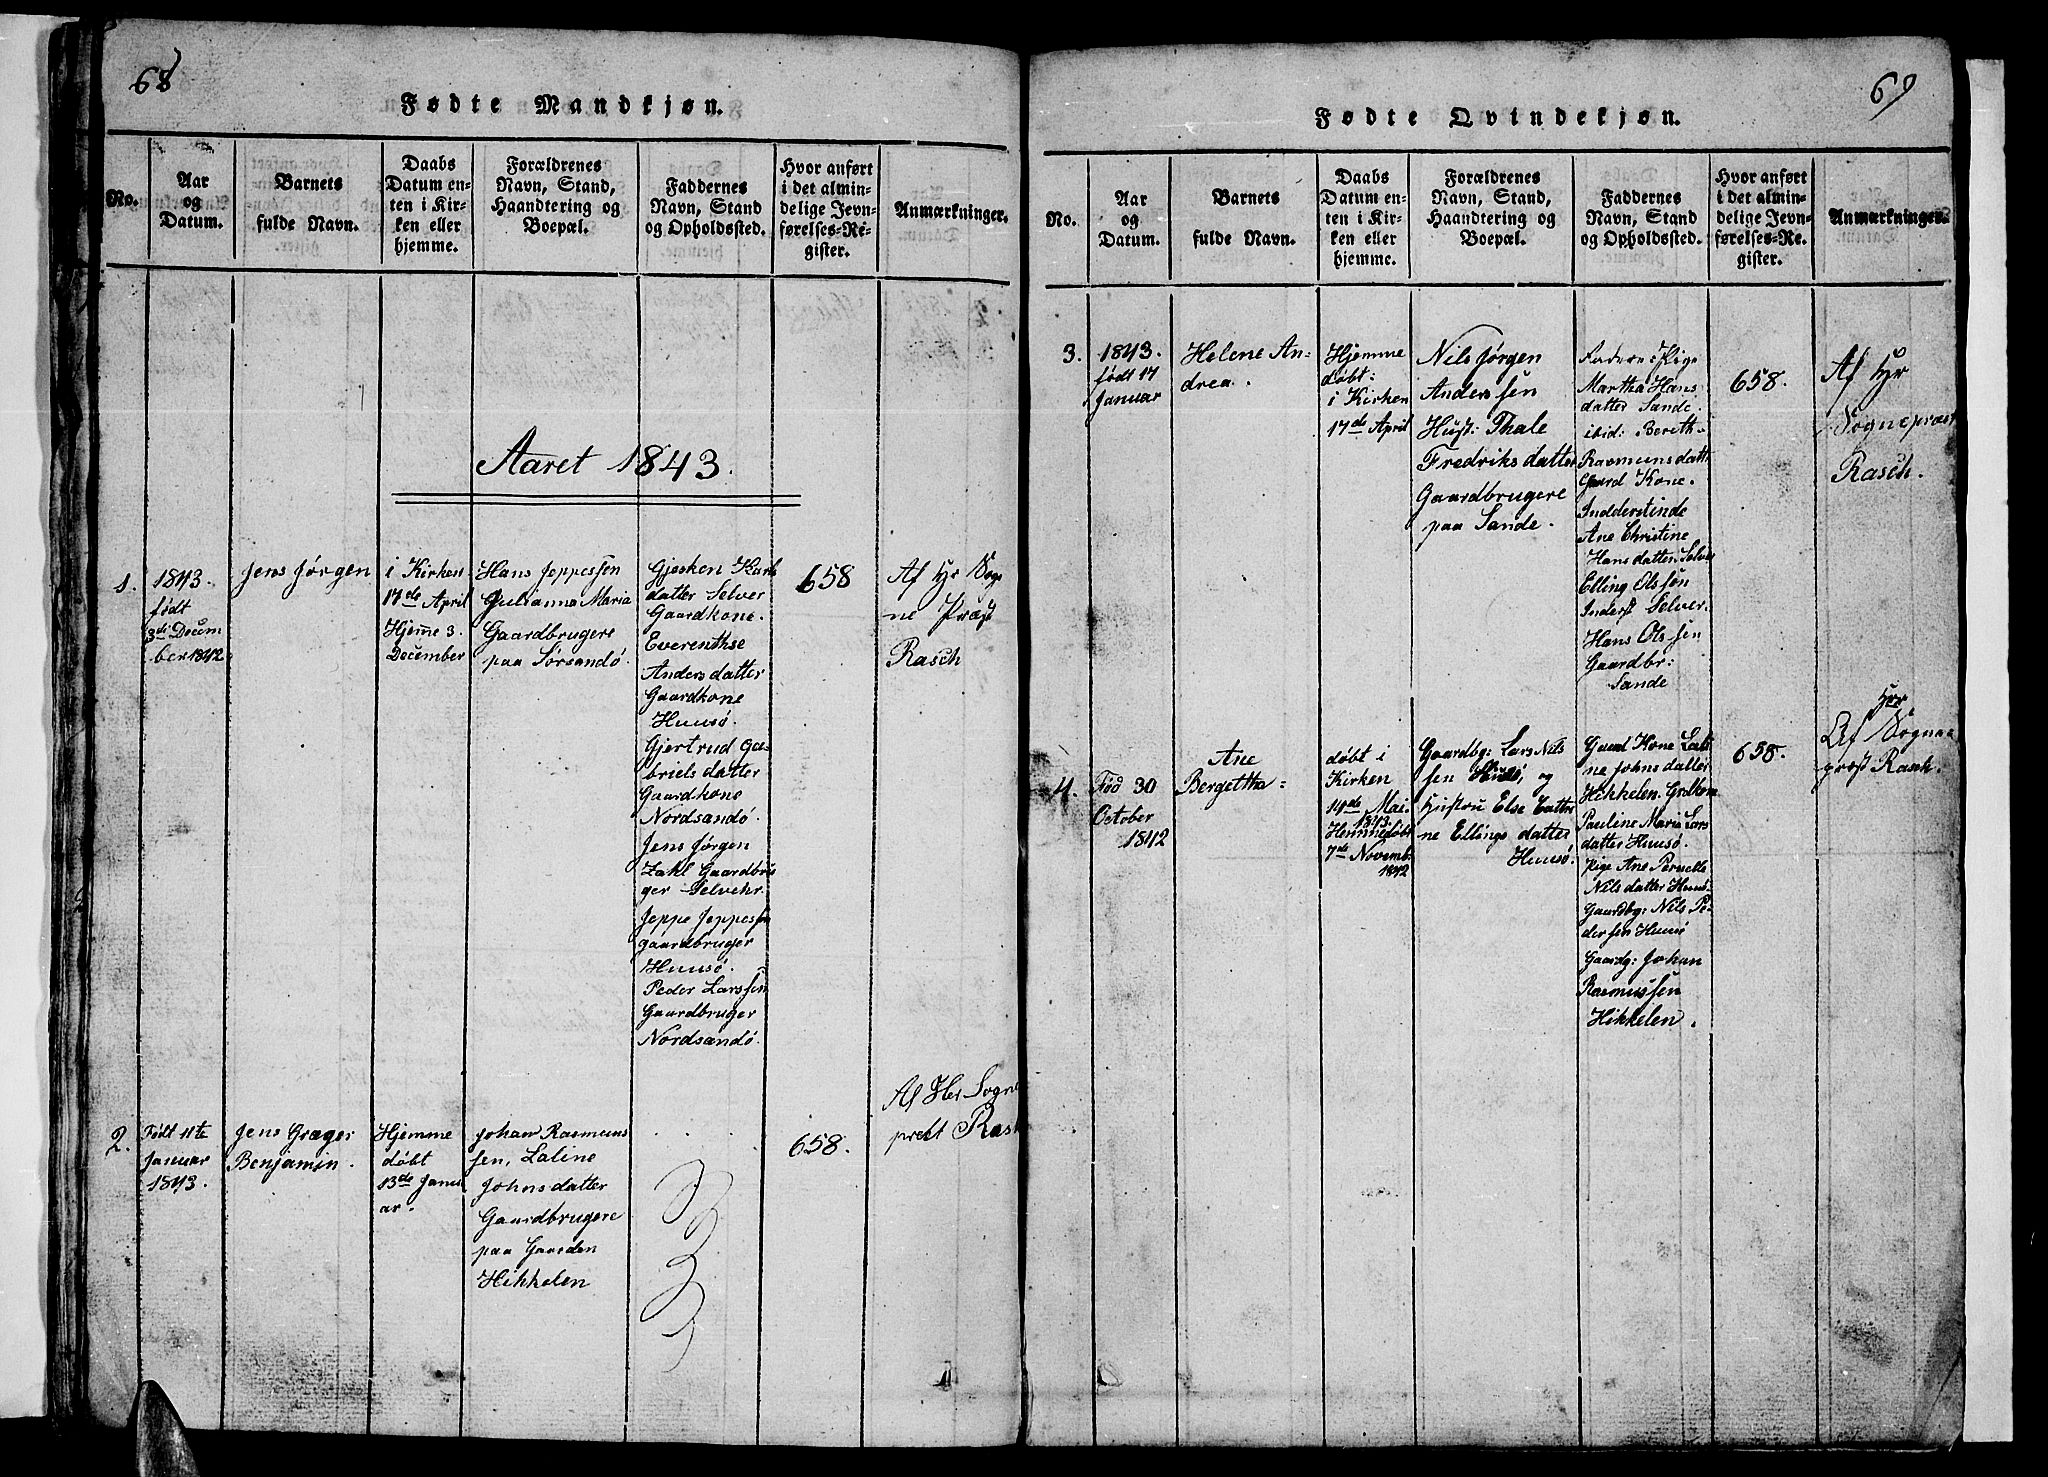 68
Fødte Mandkjøn.
No.
Aar
og
Datum.
Barnets
fulde Navn.
Daabs
Datum en-
ten i Kir-
ken eller
hjemme.
Forældrenes
Navn, Stand,
Haandtering og
Boepæl.
Faddernes
Navn, Stand
og Opholdssted.
Hvor anført
i det almin-
delige Jevn-
førelses-Re-
gister.
Anmærkninger.
Aaret 1843.
1.
1843.
født
3de Decem
ber 1842
Jens Jørgen
i Kirken
17de April
Hjeme 3.
December
Hans Jeppessen
Julianna Maria
Gaardbrugere
paa Sørsandø.
Gjesken Karls
datter Selver
Gaardkone.
Everenthse
Anders datter
Gaardkone
Huusø.
Gjertrud Ga-
briels datter
Gaardkone
Nordsandø.
Jens Jørgen
Zahl Gaardbru
ger Selvehr.
Jeppe Jeppessen
gaardbruger
Huusø.
Peder Larssen
Gaardbruger
Nordsandø
658
Af Hr Sog
ne Præst
Rasch
2.
Født 11te
Januar
1843.
Jens Græger
Benjamin.
Hjemme
døbt
13de Janu
ar.
Johan Rasmus
sen, Laline
Johns datter
Gaardbrugere
paa Gaarden
Hikkelen
658.
Af Her Sogne
prest Rasch
69
Fødte Qvindekjøn.
No.
Aar
og
Datum.
Barnets
fulde Navn.
Daabs
Datum en-
ten i Kir-
ken eller
hjemme.
Forældrenes
Navn, Stand,
Haandtering og
Boepæl.
Faddernes
Navn, Stand
og Opholdssted.
Hvor anført
i det almin-
delige Jevn-
førelses-Re-
gister.
Anmærkninger.
3.
1843.
født 17
Januar
Helene An-
drea.
Hjemme
døbt:
i Kirken
17de April
Nils Jørgen
Anderssen
Hust: Thale
Fredriks datter
Gaardbrugere
paa Sande.
Pige
Martha Hans
datter Sande.
ibid: Bereth
Rasmuns datt
Gaard Kone.
Indderstinde
Ane Christine
Hans datter Selver
Elling Olssen
Inderst Selver.
Hans Olssen
Gaardbr:
Sande
658.
Af Hr
Sognepræst
Rasch.
4.
Fød 30
October
1842
Ane
Bergettha
døbt i
Kirken
14de Mai
1843.
Hemmedøbt
7de Novemb.
1842
Gaardbg: Lars Nils
sen Huusø og
Hustru Else Cathr
ne Ellings datter
Huusø.
Gaard Kone Lali
ne Johns datter
Hikkelen. Grdkon
Pauline Maria Lars
datter Huusø.
Pige Ane Pernelle
Nils datter Huusø.
Gaardbg: Nils Pe-
dersen Huusø
Gaardg: Johan
Rasmussen
Hikkelen.
658.
Hrr
Af Sogne
prest Rasch.